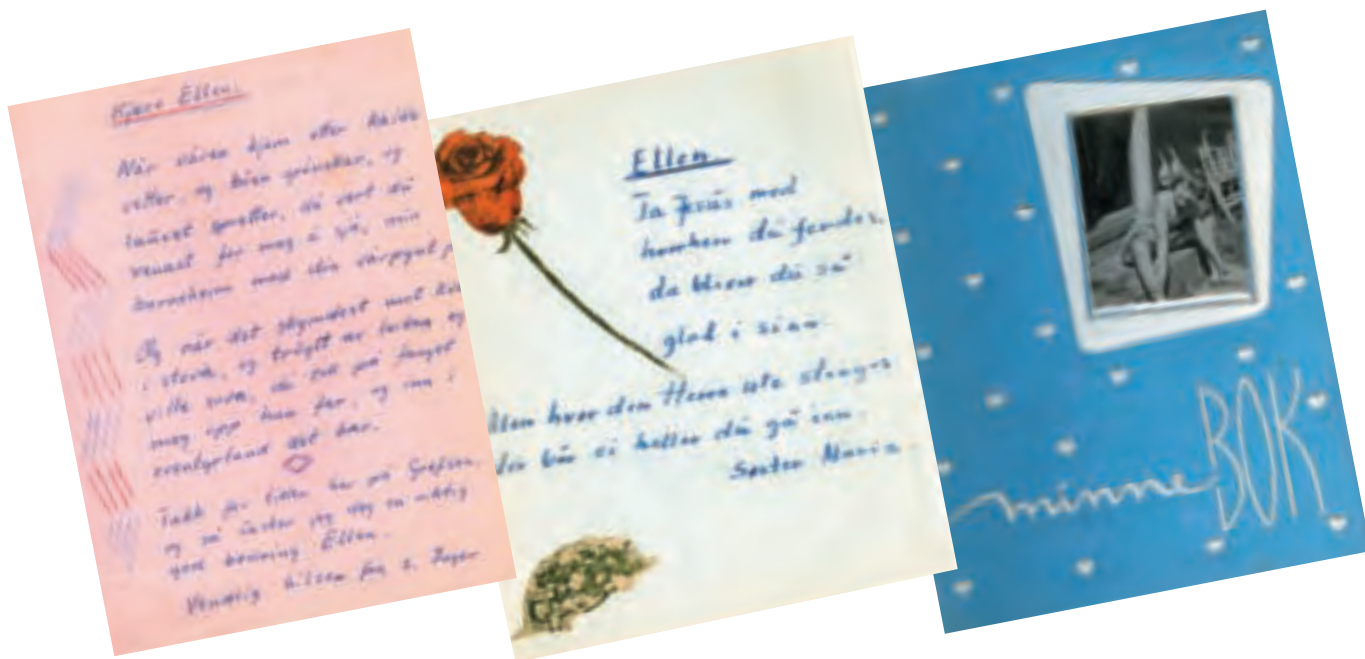 Kjære Ellen.
Når våren kjem etter
vetter, og lien grønskar, og
lauvet spretter, då vert då
venast for meg å sjå, min
barneheim med din vårpynt
Og når det skymdest mot
i stova, og trøytt av leiken eg
ville sova, då tok på fanget
meg opp han far, og inn i
eventyrland det bar.
Takk for tiden her på Grefsen,
og så ønsker jeg deg en riktig
god bedring Ellen.
Vennlig hilsen fra s. Inger
Ellen
Ta Jesus med
hvorhen du ferdes,
da bliver du så
glad i sinn.
Men hvor den Herre ikke stenges
der bør ei heller du gå inn.
Søster Maria
minne BOK